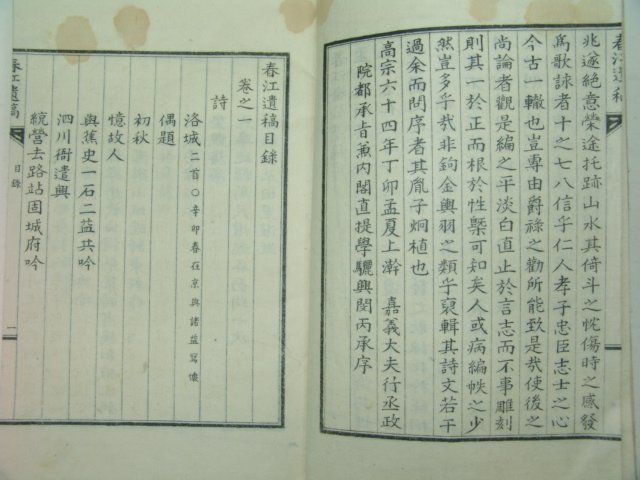 春江遺稿
兆遂絶意榮途托跡山水其倚斗之忱傷時之感發
爲歌詠者十之七八信乎仁人孝子忠臣志士之心
今古一轍也豈專由爵祿之勸所能致是哉使後之
尚論者觀是編之平淡白直止於言志而不事雕刻
則其一於正而根於性槩可知矣人或病編帙之少
然豈多乎哉非鉤金與羽之類乎裒輯其詩文若干
過余而問序者其胤子炯植也
高宗六十四年丁卯孟夏上澣　嘉義大夫行丞政
院都承旨兼內閣直提學驪興閔丙承序
春江遺稿目錄
卷之一
詩
洛城二首○辛卯春在京與諸益寫懷
偶題
初秋
憶故人
與蕉史一石二蓝共吟
泗川衙遣興
統營去路站固城府吟
春江遺稿
目錄
一